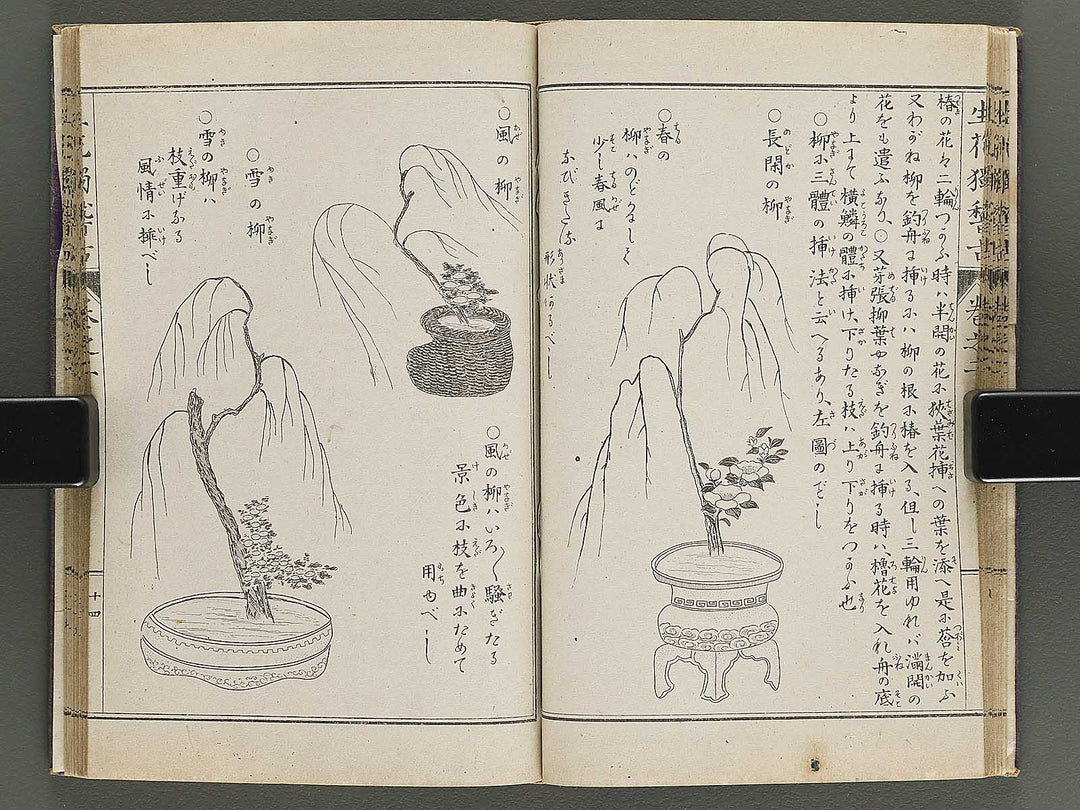 生花獨稽古 巻之一
椿の花を二輪つかふ時ハ半開の花に狹葉花挿への葉を添へ是に莟を加ふ
又わがね柳を釣舟に挿るにハ柳の根に椿を入る、但し三輪用ゆれバ滿開の
花をも遣ふなり、○又芽張柳葉やなぎを釣舟に挿る時ハ、櫓花を入れ舟の底
より上まて横鱗の體に挿け、下りたる枝ハ上り下りをつかふ也
○柳に三體の挿法と云へるあり、左圖のごとし
○長閑の柳
○春の
柳ハのどかにして
少し春風に
なびきたる
形状あるべし
○風の柳
○風の柳ハいろ〳〵騷ぎたる
景色に枝を曲にためて
用ゆべし
○雪の柳
○雪の柳ハ
枝重げなる
風情に挿べし
十四